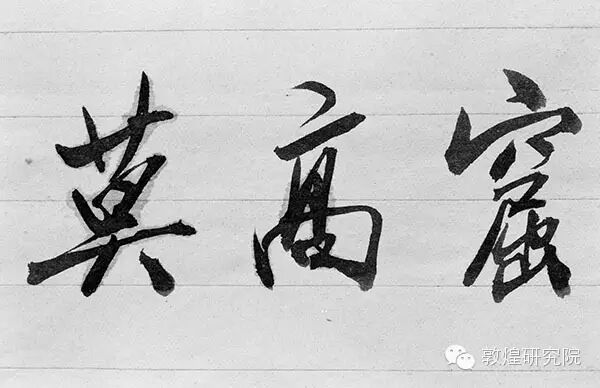 莫高窟
敦煌研究院